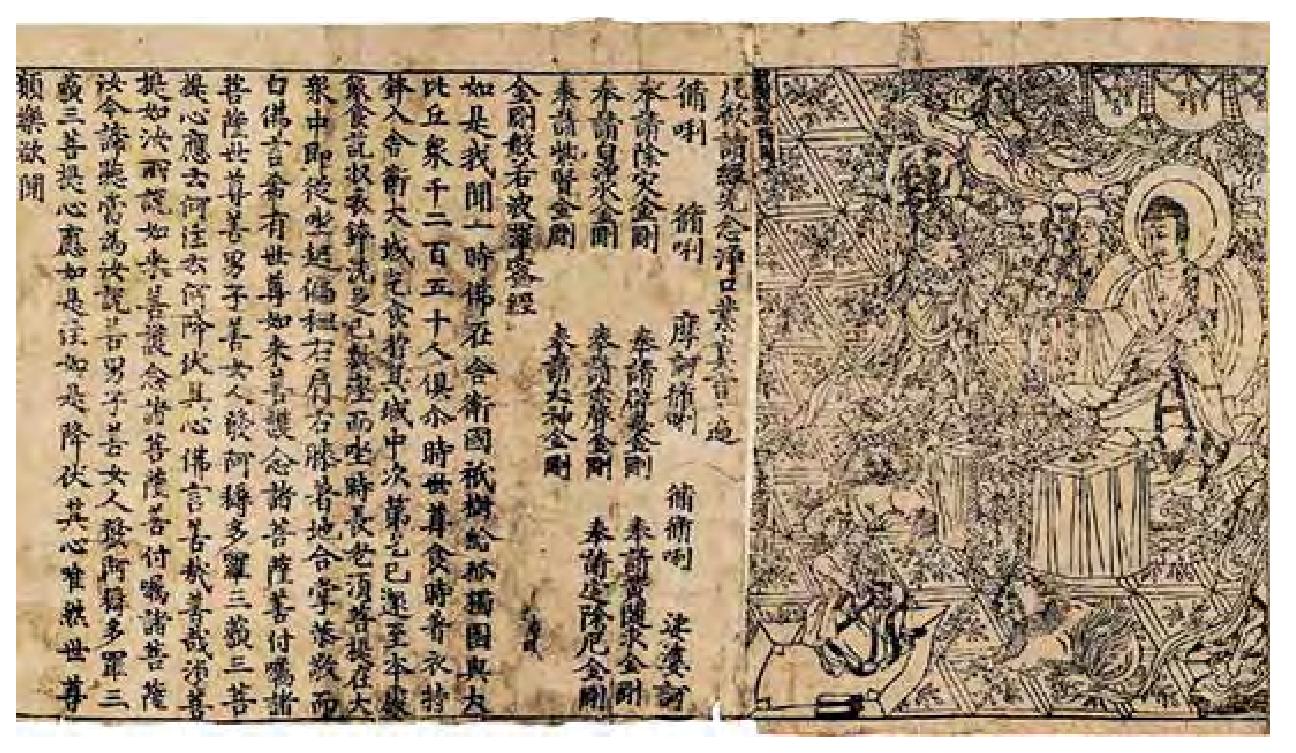 凡欲讀經先念淨口業真言一遍
脩唎 脩唎 摩訶脩唎 脩脩唎 娑婆訶
奉請除灾金剛 奉請辟毒金剛 奉請黃隨求金剛
奉請白淨水金剛 奉請赤聲金剛 奉請定除厄金剛
奉請紫賢金剛 奉請大神金剛
金剛般若波羅蜜經
如是我聞一時佛在舍衛國祇樹給孤獨園與大
比丘衆千二百五十人俱尒時世尊食時著衣持
鉢入舍衛大城乞食於其城中次第乞已還至本處
飯食訖收衣鉢洗足已敷座而坐時長老湏菩提在大
衆中即從坐起偏袒右肩右膝著地合掌恭敬而
白佛言希有世尊如來善護念諸菩薩善付囑諸
菩薩世尊善男子善女人發阿耨多羅三藐三菩
提心應云何住云何降伏其心佛言善哉善哉湏菩
提如汝所說如來善護念諸菩薩善付囑諸菩薩
汝今諦聽當為汝說善男子善女人發阿耨多羅三
藐三菩提心應如是住如是降伏其心唯然世尊
願樂欲聞